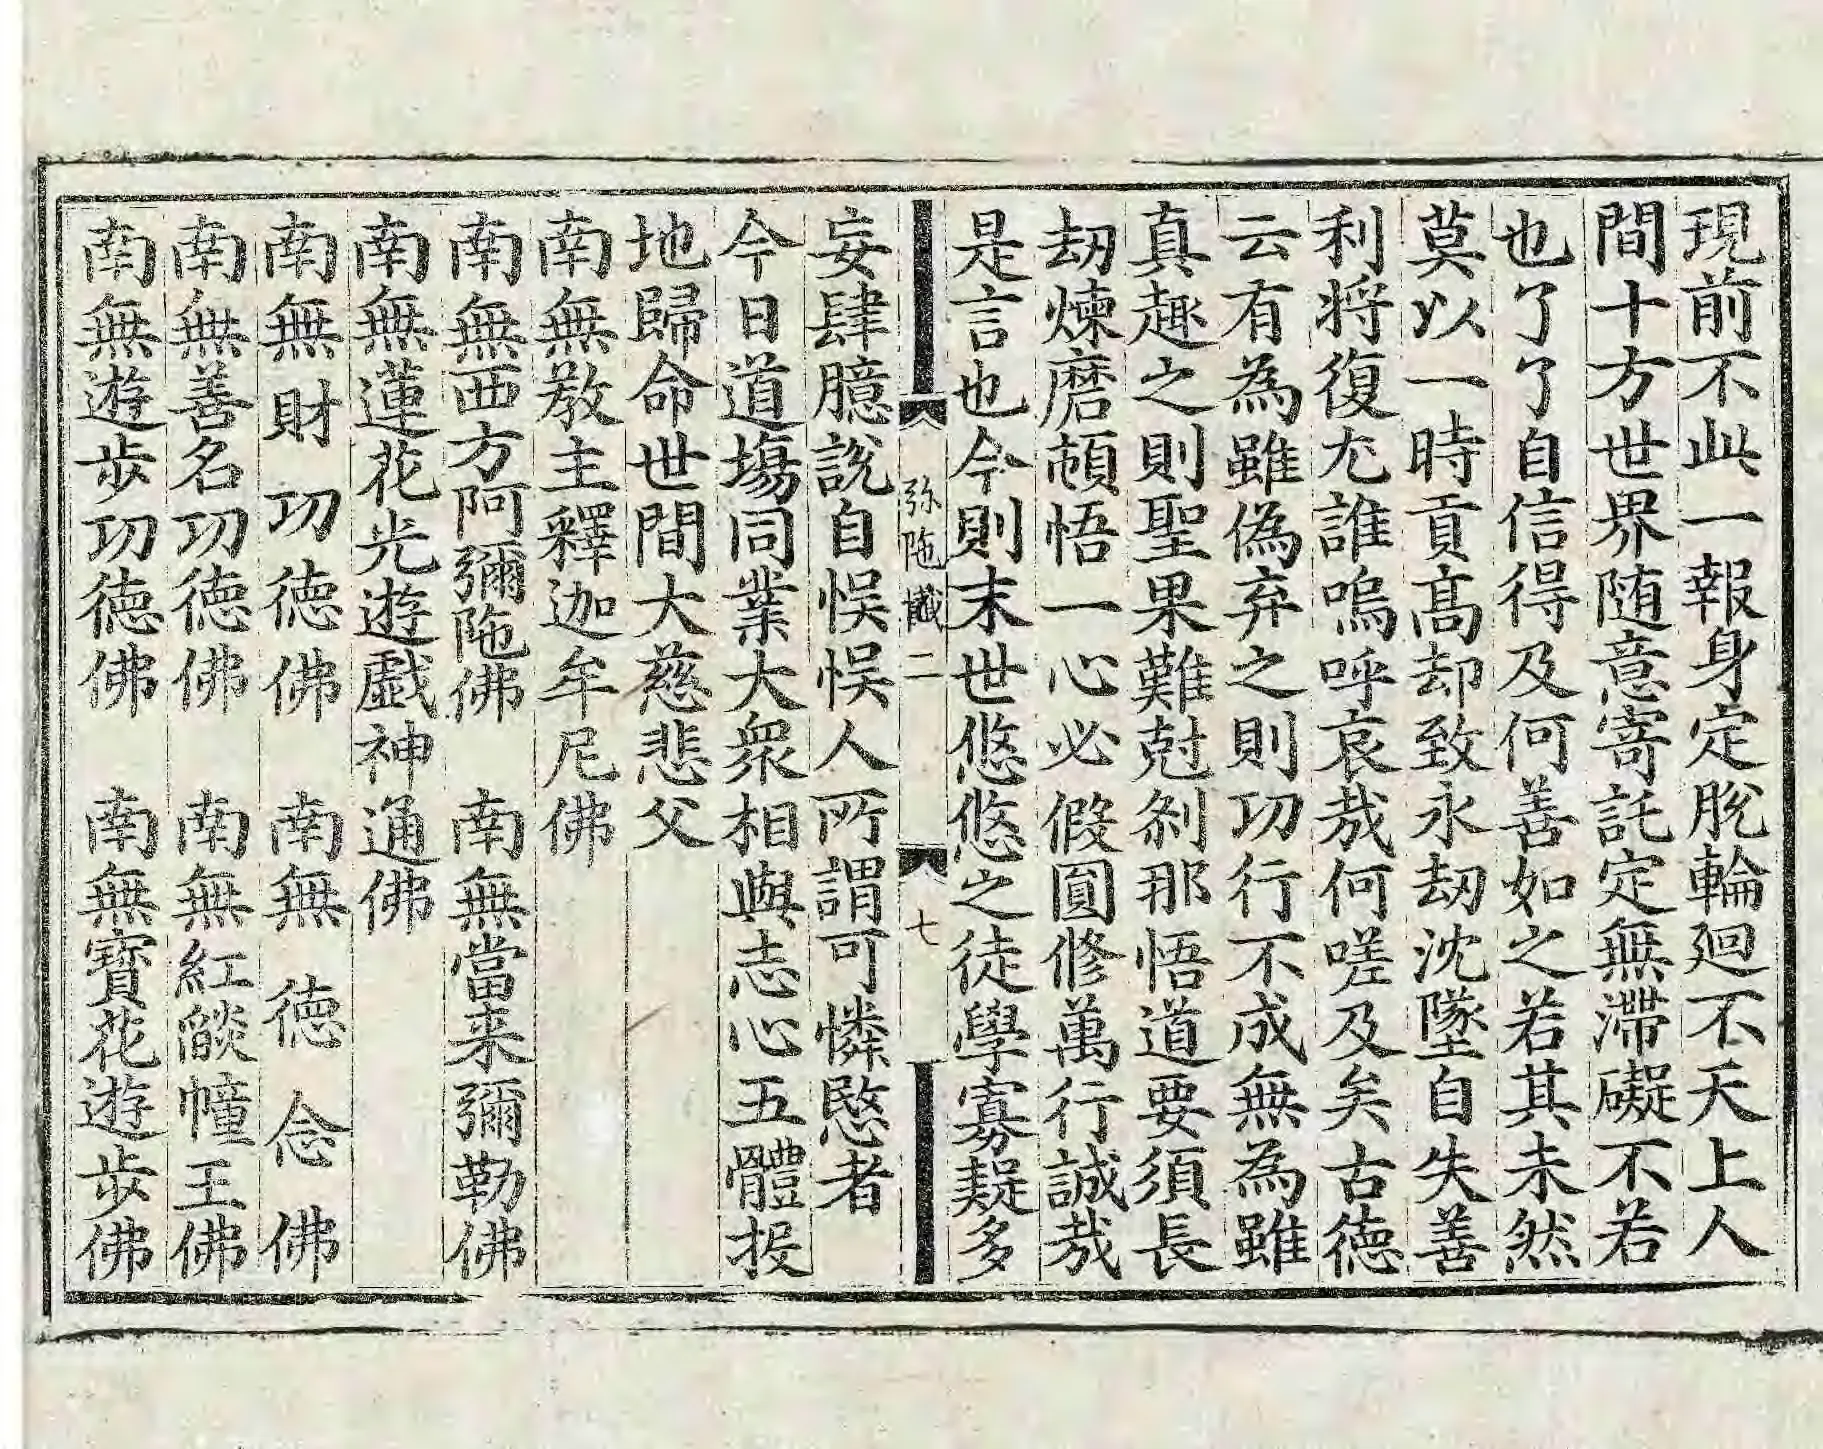 現前不此一報身定脫輪迴不天上人
間十方世界随意寄託定無滯礙不若
也了了自信得及何善如之若其未然
莫以一時貢髙却致永劫沈墜自失善
利將復尤誰嗚呼哀哉何嗟及矣古德
云有為雖偽弃之則功行不成無為雖
真趣之則聖果難尅刹那悟道要須長
劫煉磨頓悟一心必假圓修萬行誠哉
是言也今則末世悠悠之徒學寡疑多
弥陁懺二 七
妄肆臆說自悞悞人所謂可憐愍者
今日道塲同業大衆相與志心五體投
地歸命世間大慈悲父
南無教主釋迦牟尼佛
南無西方阿彌陁佛 南無當来彌勒佛
南無蓮花光遊戲神通佛
南無財功德佛 南無德念佛
南無善名功德佛 南無紅燄幢王佛
南無遊步功德佛 南無寶花遊步佛